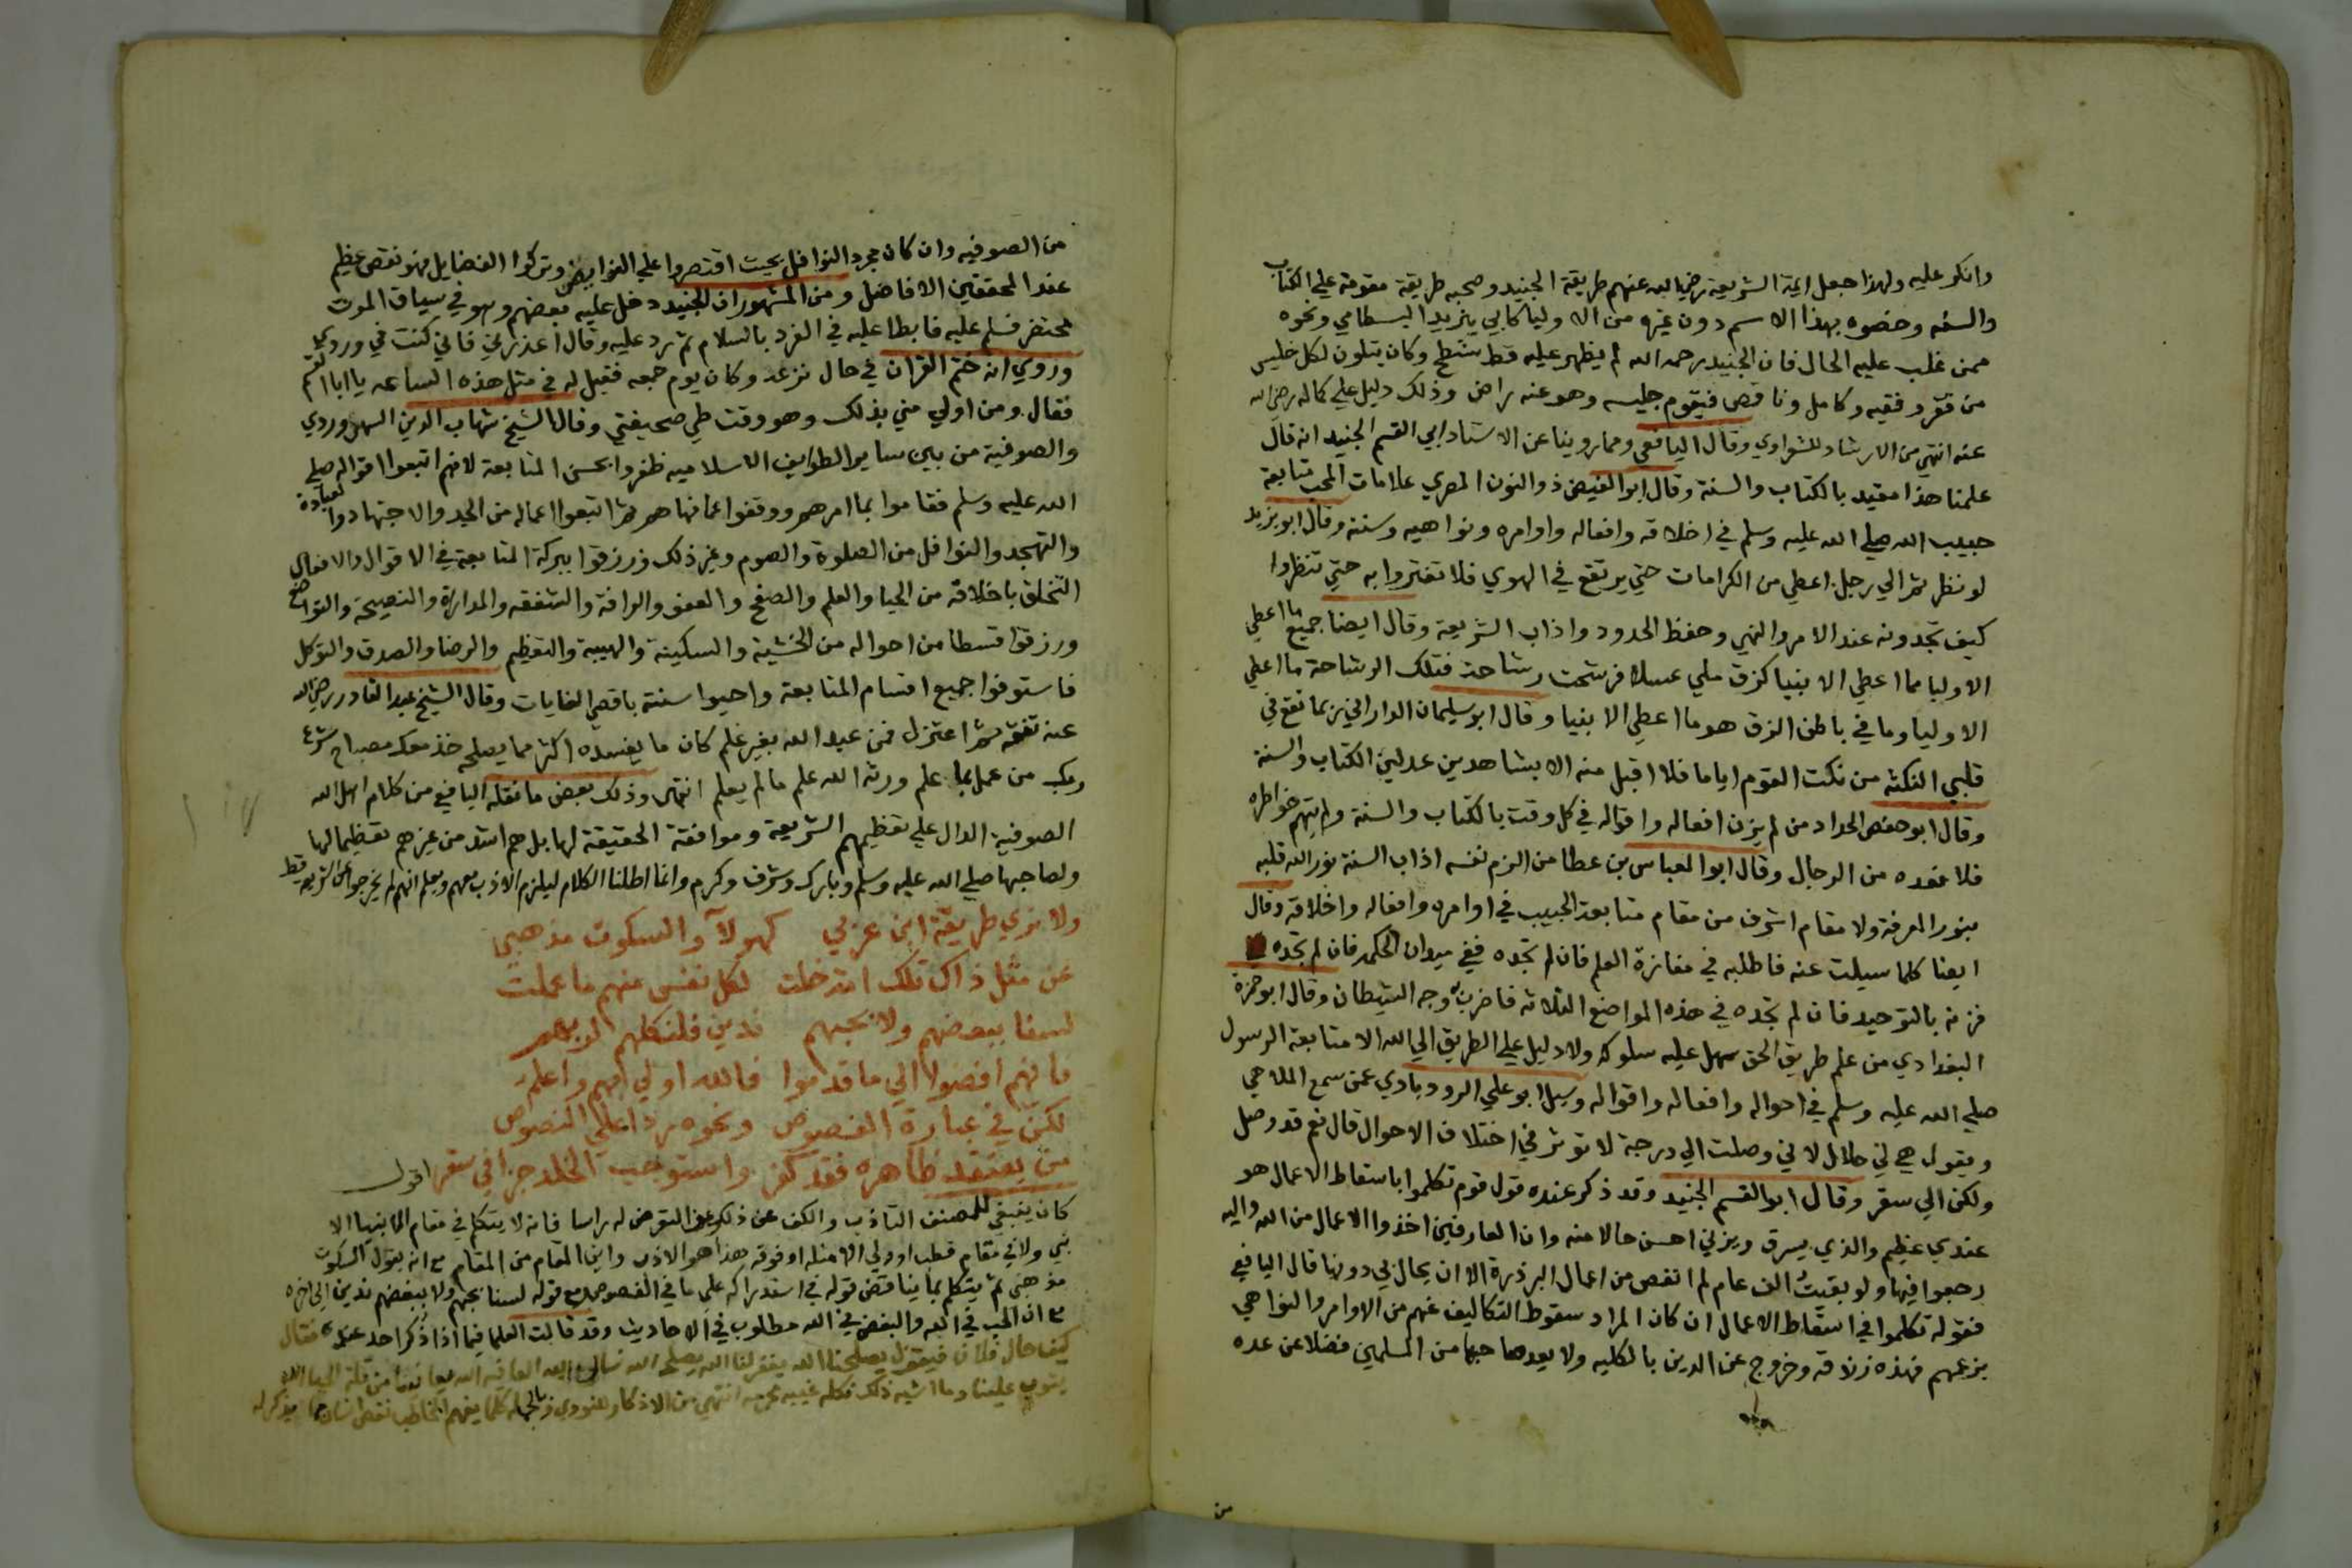 وانكر عليه ولهذا جعل ايمة الشريعة رضي الله عنهم طريقة الجنيد وصحبه طريقة مقومة علي الكتاب
والسنه وخصوه بهذا الاسم دون غيره من الاولياء كابي يزيد البسطامي ونحوه
ممن غلب عليه الحال فان الجنيد رحمه الله لم يظهر عليه قط شطح وكان يتلون لكل جليس
من فقر وفقيه وكامل وناقص فيقوم جليسه وهو عنه راض وذلك دليل علي كماله رضي الله
عنه انتهي من الارشاد للشعراوي وقال اليافعي ومما روينا عن الاستاد ابي القسم الجنيد انه قال
علمنا هذا مقيد بالكتاب والسنة وقال ابوا الفيض ذوالنون المصري علامات المحب متابعة
حبيب الله صلي الله عليه وسلم في اخلاقه وافعاله واوامره ونواهيه وسننه وقال ابو يزيد
لو نظرتم الي رجل اعطي من الكرامات حتي يرتفع في الهوي فلا تغتروا به حتي تنظروا
كيف تجدونه عند الامر والنهي وحفظ الحدود واداب الشريعة وقال ايضا جميع ما اعطي
الاوليا مما اعطي الانبيا كزق ملي عسلا فرشحت رشاحة فتلك الرشاحة ما اعطي
الاوليا وما في باطن الزق هو ما اعطي الانبيا وقال ابو سليمان الداراني ربما تقع في
قلبي النكتة من نكت القوم اياما فلا اقبل منه الا بشاهدين عدلين الكتاب والسنة
وقال ابو حفص الحداد من لم يزن افعاله واقواله في كل وقت بالكتاب والسنة ولم يتهم خواطره
فلا تعده من الرجال وقال ابوا العباس بن عطا من الزم نفسه اداب السنة نور الله قلبه
بنور المعرفة ولا مقام اشرف من مقام متابعة الحبيب في اوامره وافعاله واخلاقه وقال
ايضا كلما سيلت عنه فاطلبه في مفازة العلم فان لم تجده ففي ميدان الحكمه فان لم تجده
فزنه بالتوحيد فان لم تجده في هذه المواضع الثلاثه فاضرب به وجه الشيطان وقال ابو حمزة
البغدادي من علم طريق الحق سهل عليه سلوكه ولا دليل علي الطريق الي الله الا متابعة الرسول
صلي الله عليه وسلم في احواله وافعاله واقواله وسيل ابو علي الرودبادي عمن سمع الملاهي
ويقول هي لي حلال لاني وصلت الي درجة لا توثر في اختلاف الاحوال قال نعم قد وصل
ولكن الي سقر وقال ابوا القسم الجنيد وقد ذكر عنده قول قوم تكلموا باسقاط الاعمال هو
عندي عظيم والذي يسرق ويزني احسن حالا منه وان العارفين اخذوا الاعمال من الله واليه
رجعوا فيها ولو بقيت الف عام لم انقص من اعمال البر ذرة الا ان يحال بي دونها قال اليافعي
فقوله تكلموا في اسقاط الاعمال ان كان المراد سقوط التكاليف عنهم من الاوامر والنواهي
بزعمهم فهذه زندقه وخروج عن الدين بالكليه ولا يعد صاحبها من المسلمين فضلا عن عده
من
من الصوفيه وان كان مجرد النوافل بحيث اقتصروا علي الفرايض وتركوا الفضايل فهو نقص عظيم
عند المحققين الافاضل ومن المشهور ان الجنيد دخل عليه بعضهم وهو في سياق الموت
محتضر فسلم عليه فابطا عليه في الرد بالسلام ثم رد عليه وقال اعذرني فاني كنت في وردي
وروي انه ختم القران في حال نزعه وكان يوم جمعه فقيل له في مثل هذه الساعه يا ابا القسم
فقال ومن اولي مني بذلك وهو وقت طي صحيفتي وقال الشيخ شهاب الدين السهروردي
والصوفية من بين ساير الطوايف الاسلاميه ظفروا بحسن المتابعة لانهم اتبعوا اقواله صلي
الله عليه وسلم فقاموا بما امرهم ووقفوا عما نهاهم ثم اتبعوا اعماله من الجد والاجتهاد والعبادة
والتهجد والنوافل من الصلوة والصوم وغير ذلك ورزقوا ببركة المتابعة في الاقوال والافعال
التخلق باخلاقه من الحيا والعلم والصفح والعفو والرافة والشفقه والمداراة والنصيحة والتواضع
ورزقوا قسطا من احواله من الخشية والسكينة والهيبه والتعظيم والرضا والصدق والتوكل
فاستوفوا جميع اقسام المتابعة واحيوا سنته باقصي الغايات وقال الشيخ عبد القادر رضي الله
عنه تفقه ثم اعتزل فمن عبد الله بغير علم كان ما يفسده اكثر مما يصلحه خذ معك مصباح شرع
ربك من عمل بما علم ورثه الله علم ما لم يعلم انتهي وذلك بعض ما نقله اليافعي من كلام اهل الله
الصوفية الدال علي تعظيمهم الشريعة وموافقة الحقيقة لها بل هم اشد من غيرهم تعظيما لها
ولصاحبها صلي الله عليه وسلم وبارك وشرف وكرم وانما اطلنا الكلام ليلزم الادب معهم ويعلم انهم لم يخرجوا عن الشريعه قط
ولا نري طريقة ابن عربي كهولآ والسكوت مذهبي
عن مثل ذاك تلك امة خلت لكل نفس منهم ما عملت
لسنا ببغضهم ولا بحبهم ندين فلنكلهم لربهم
فانهم افضوا الي ما قدموا فالله اولي بهم واعلم
لكن في عبارة الفصوص ونحوه ردا علي النصوص
من يعتقد ظاهره فقد كفر واستوجب الخلد جزا في سقر اقول
كان ينبغي للمصنف التادب والكف عن ذلك وعن التعرض له راسا فانه لا يتكلم في مقام الانبيا الا
نبي ولا في مقام قطب او ولي الا مثله او فوقه هذا هو الادب واين المقام من المقام مع انه يقول السكوت
مذهبي ثم يتكلم بما يناقض قوله في استدراكه علي ما في الفصوص ومع قوله لسنا بحبهم ولا ببغضهم ندين الي اخره
مع ان الحب في الله والبغض في الله مطلوب في الاحاديث وقد قالت العلما فيما اذا ذكر احد عنده فقال
كيف حال فلان فيقول يصلحنا الله يغفر لنا الله يصلحه الله نسال الله العافيه الله يعافينا من قلة الحيا الله
يتوب علينا وما اشبه ذلك فكله غيبه محرمه انتهي من الاذكار للنووي وبالجملة كلما يفهم المخاطب نقص انسان